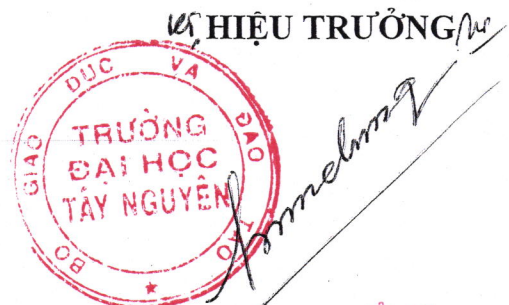 HIỆU TRƯỞNG
BỘ GIÁO DỤC VÀ ĐÀO TẠO
TRƯỜNG
ĐẠI HỌC
TÂY NGUYÊN